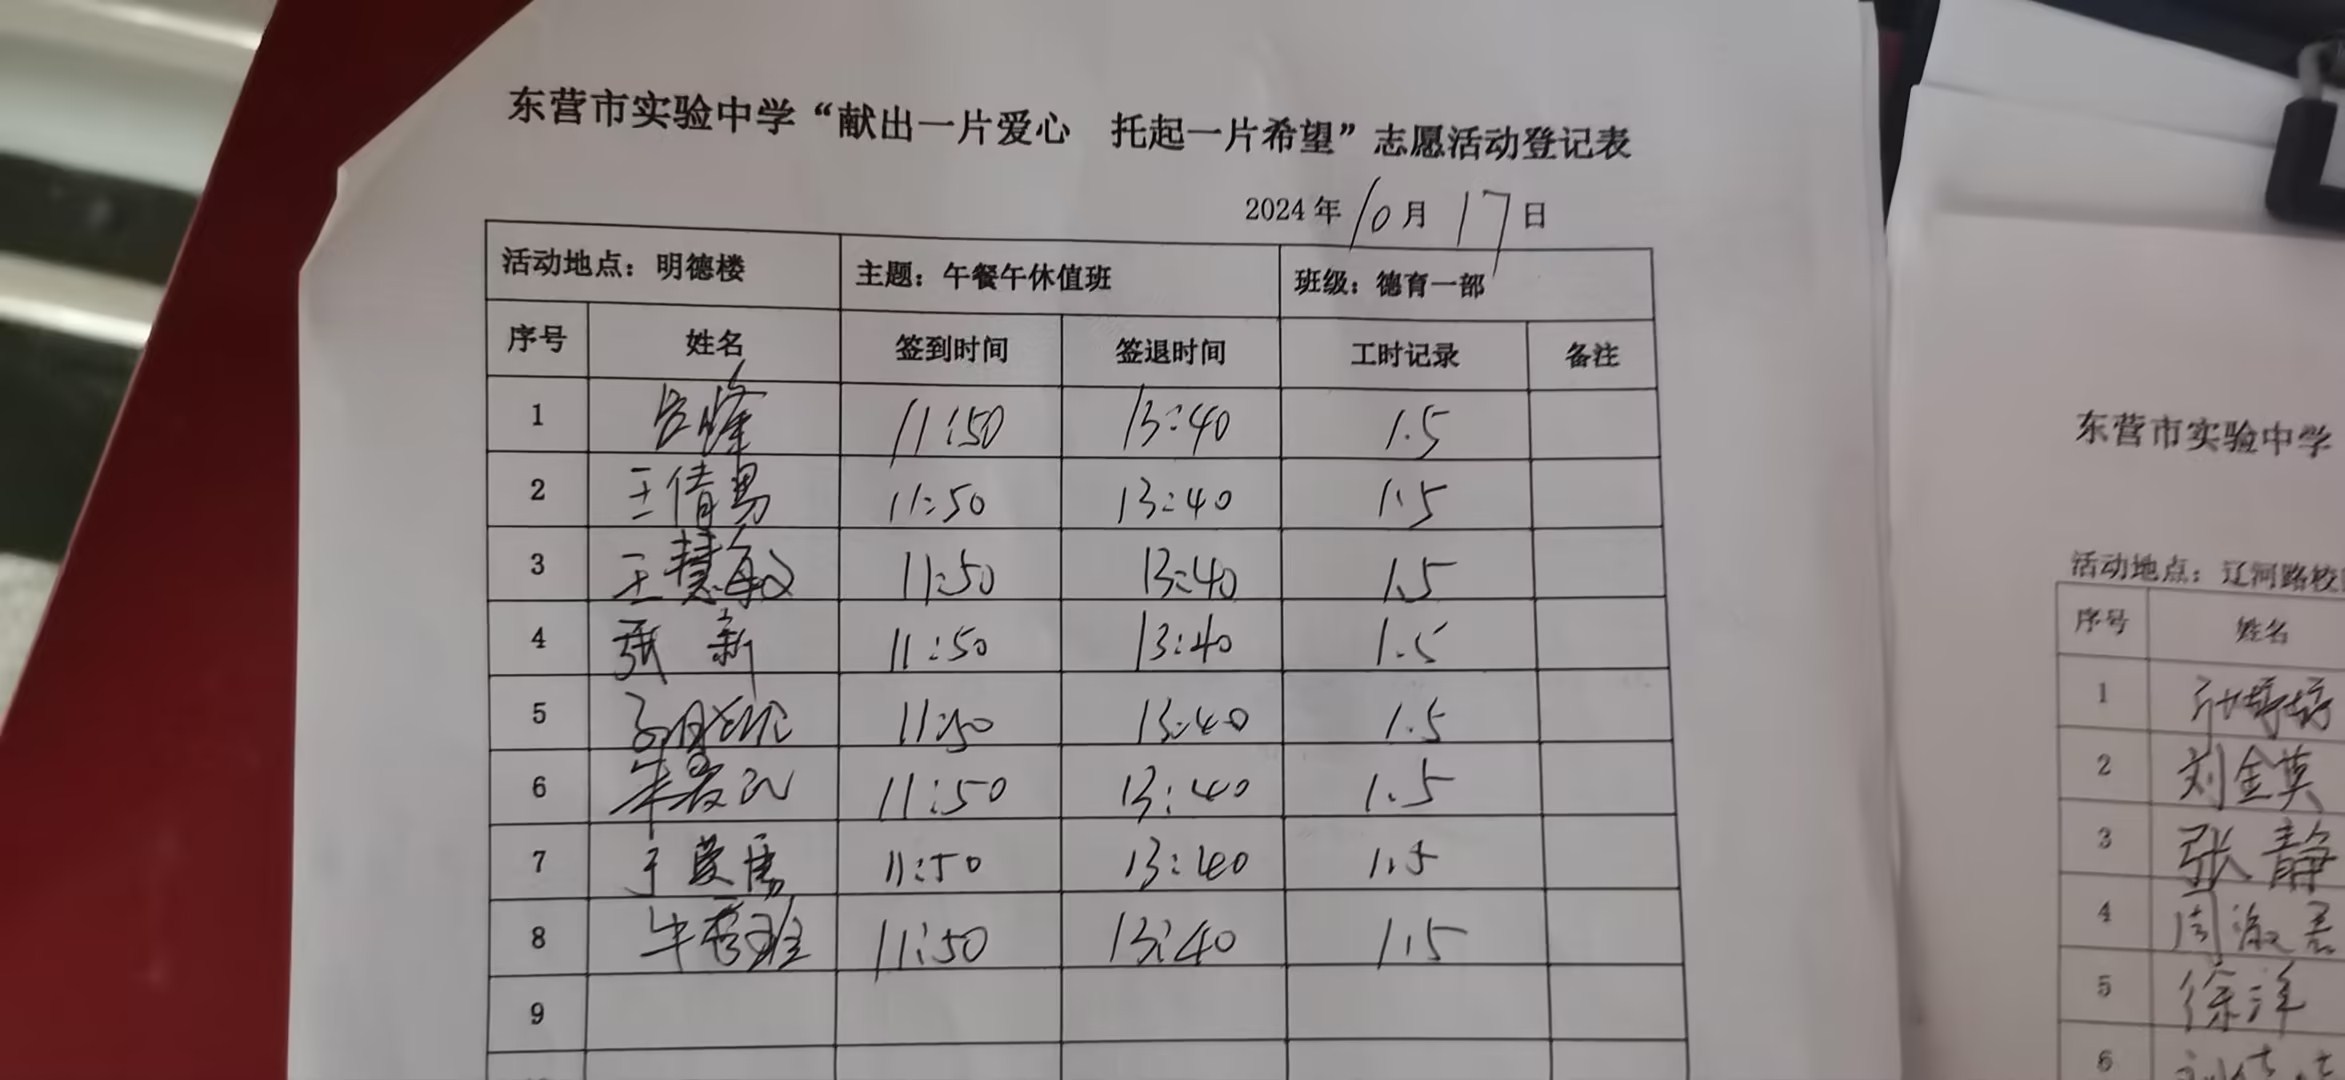 东营市实验中学“献出一片爱心 托起一片希望”志愿活动登记表
2024年10月17日
活动地点：明德楼 主题：午餐午休值班 班级：德育一部
序号 姓名 签到时间 签退时间 工时记录 备注
1 11:50 13:40 1.5
2 王倩男 11:50 13:40 1.5
3 王慧敏 11:50 13:40 1.5
4 张新 11:50 13:40 1.5
5 11:50 13:40 1.5
6 11:50 13:40 1.5
7 11:50 13:40 1.5
8 11:50 13:40 1.5
9
东营市实验中学
活动地点：辽河路校
序号 姓名
1
2 刘金英
3 张静
4 周淑君
5 徐洋
6